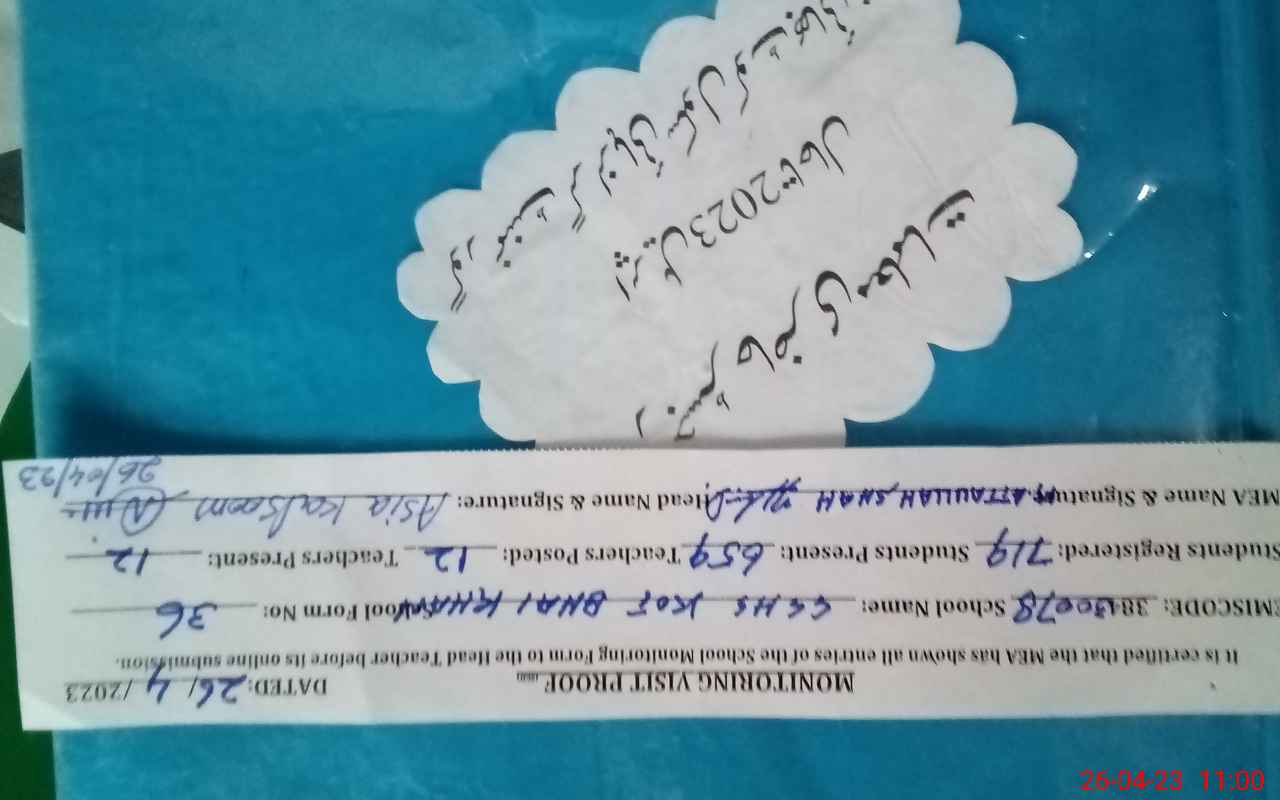 رجسٹر خاص کی معلومات
اپریل 2023 تا حال
گورنمنٹ گرلز ہائی سکول کوٹ بھائی
MONITORING VISIT PROOF DATED: 26/4/2023
It is certified that the MEA has shown all entries of the School Monitoring Form to the Head Teacher before its online submission.
EMISCODE: 38430078 School Name: GGHS KOT BHAI KHAN School Form No: 36
Students Registered: 719 Students Present: 659 Teachers Posted: 12 Teachers Present: 12
MEA Name & Signature: M. ATTAULLAH SHAH Head Name & Signature: Asia Kalsoom
26/04/23
26-04-23 11:00